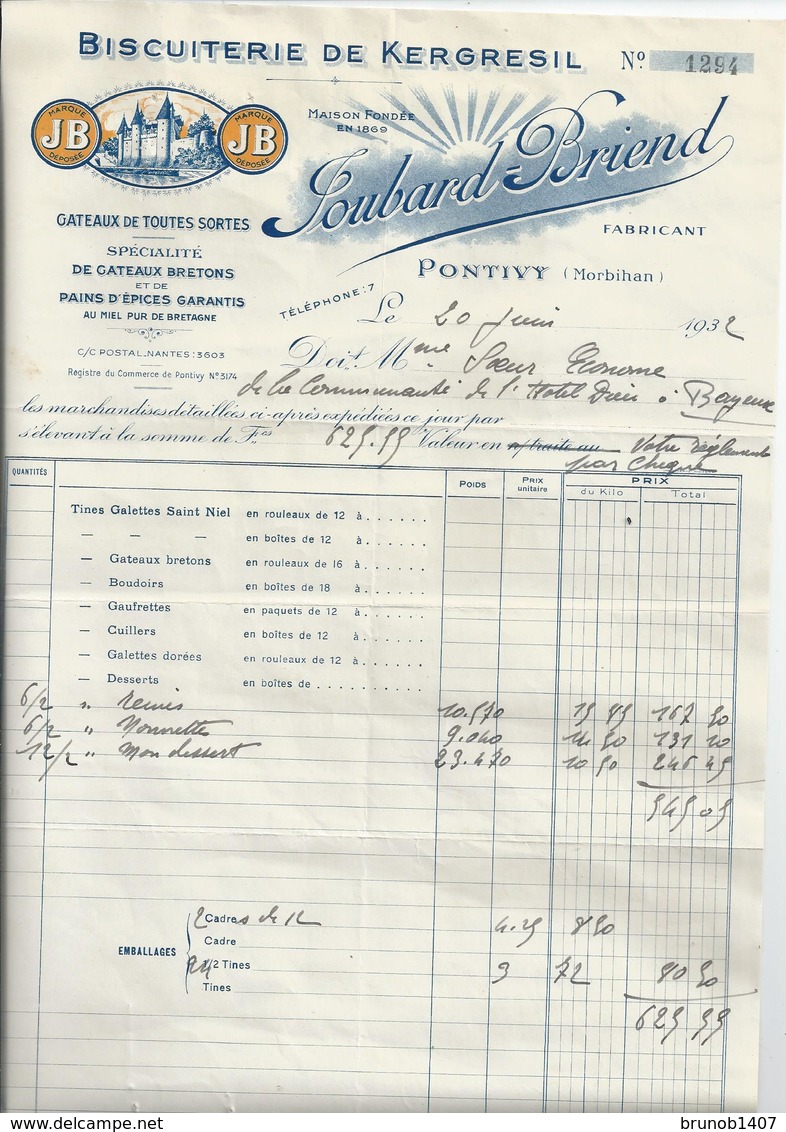 BISCUITERIE DE KERGRESIL
Nº 1294
MARQUE DÉPOSÉE
JB
MARQUE DÉPOSÉE
JB
MAISON FONDÉE
EN 1869
Joubard-Briend
FABRICANT
PONTIVY (Morbihan)
GATEAUX DE TOUTES SORTES
SPÉCIALITÉ
DE GATEAUX BRETONS
ET DE
PAINS D'ÉPICES GARANTIS
AU MIEL PUR DE BRETAGNE
TÉLÉPHONE: 7
C/C POSTAL.NANTES: 3603
Registre du Commerce de Pontivy Nº 3174
Le 20 Juin 1932
Doit Mme Sœur Econome
de la Communauté de l'Hotel Dieu à Bayeux
les marchandises détaillées ci-après expédiées ce jour par
s'élevant à la somme de Fcs 625.55 Valeur en n/ traite au Votre règlement
par Chèque
QUANTITÉS
POIDS
PRIX unitaire
PRIX
du Kilo
Total
Tines Galettes Saint Niel en rouleaux de 12 à . . . . . .
— — — en boîtes de 12 à . . . . . .
— Gateaux bretons en rouleaux de 16 à . . . . . .
— Boudoirs en boîtes de 18 à . . . . . .
— Gaufrettes en paquets de 12 à . . . . . .
— Cuillers en boîtes de 12 à . . . . . .
— Galettes dorées en rouleaux de 12 à . . . . . .
— Desserts en boîtes de . . . . . . . . . .
6/2 " 10.570 15 85 167 50
6/2 " Nonnette 9.040 14 50 131 10
12/2 " Mon dessert 23.470 10 50 246 45
545 05
EMBALLAGES
2 Cadres de 12 4.25 8 50
Cadre
24 1/2 Tines 3 72 80 50
Tines
625 55
delcampe.net
brunob1407